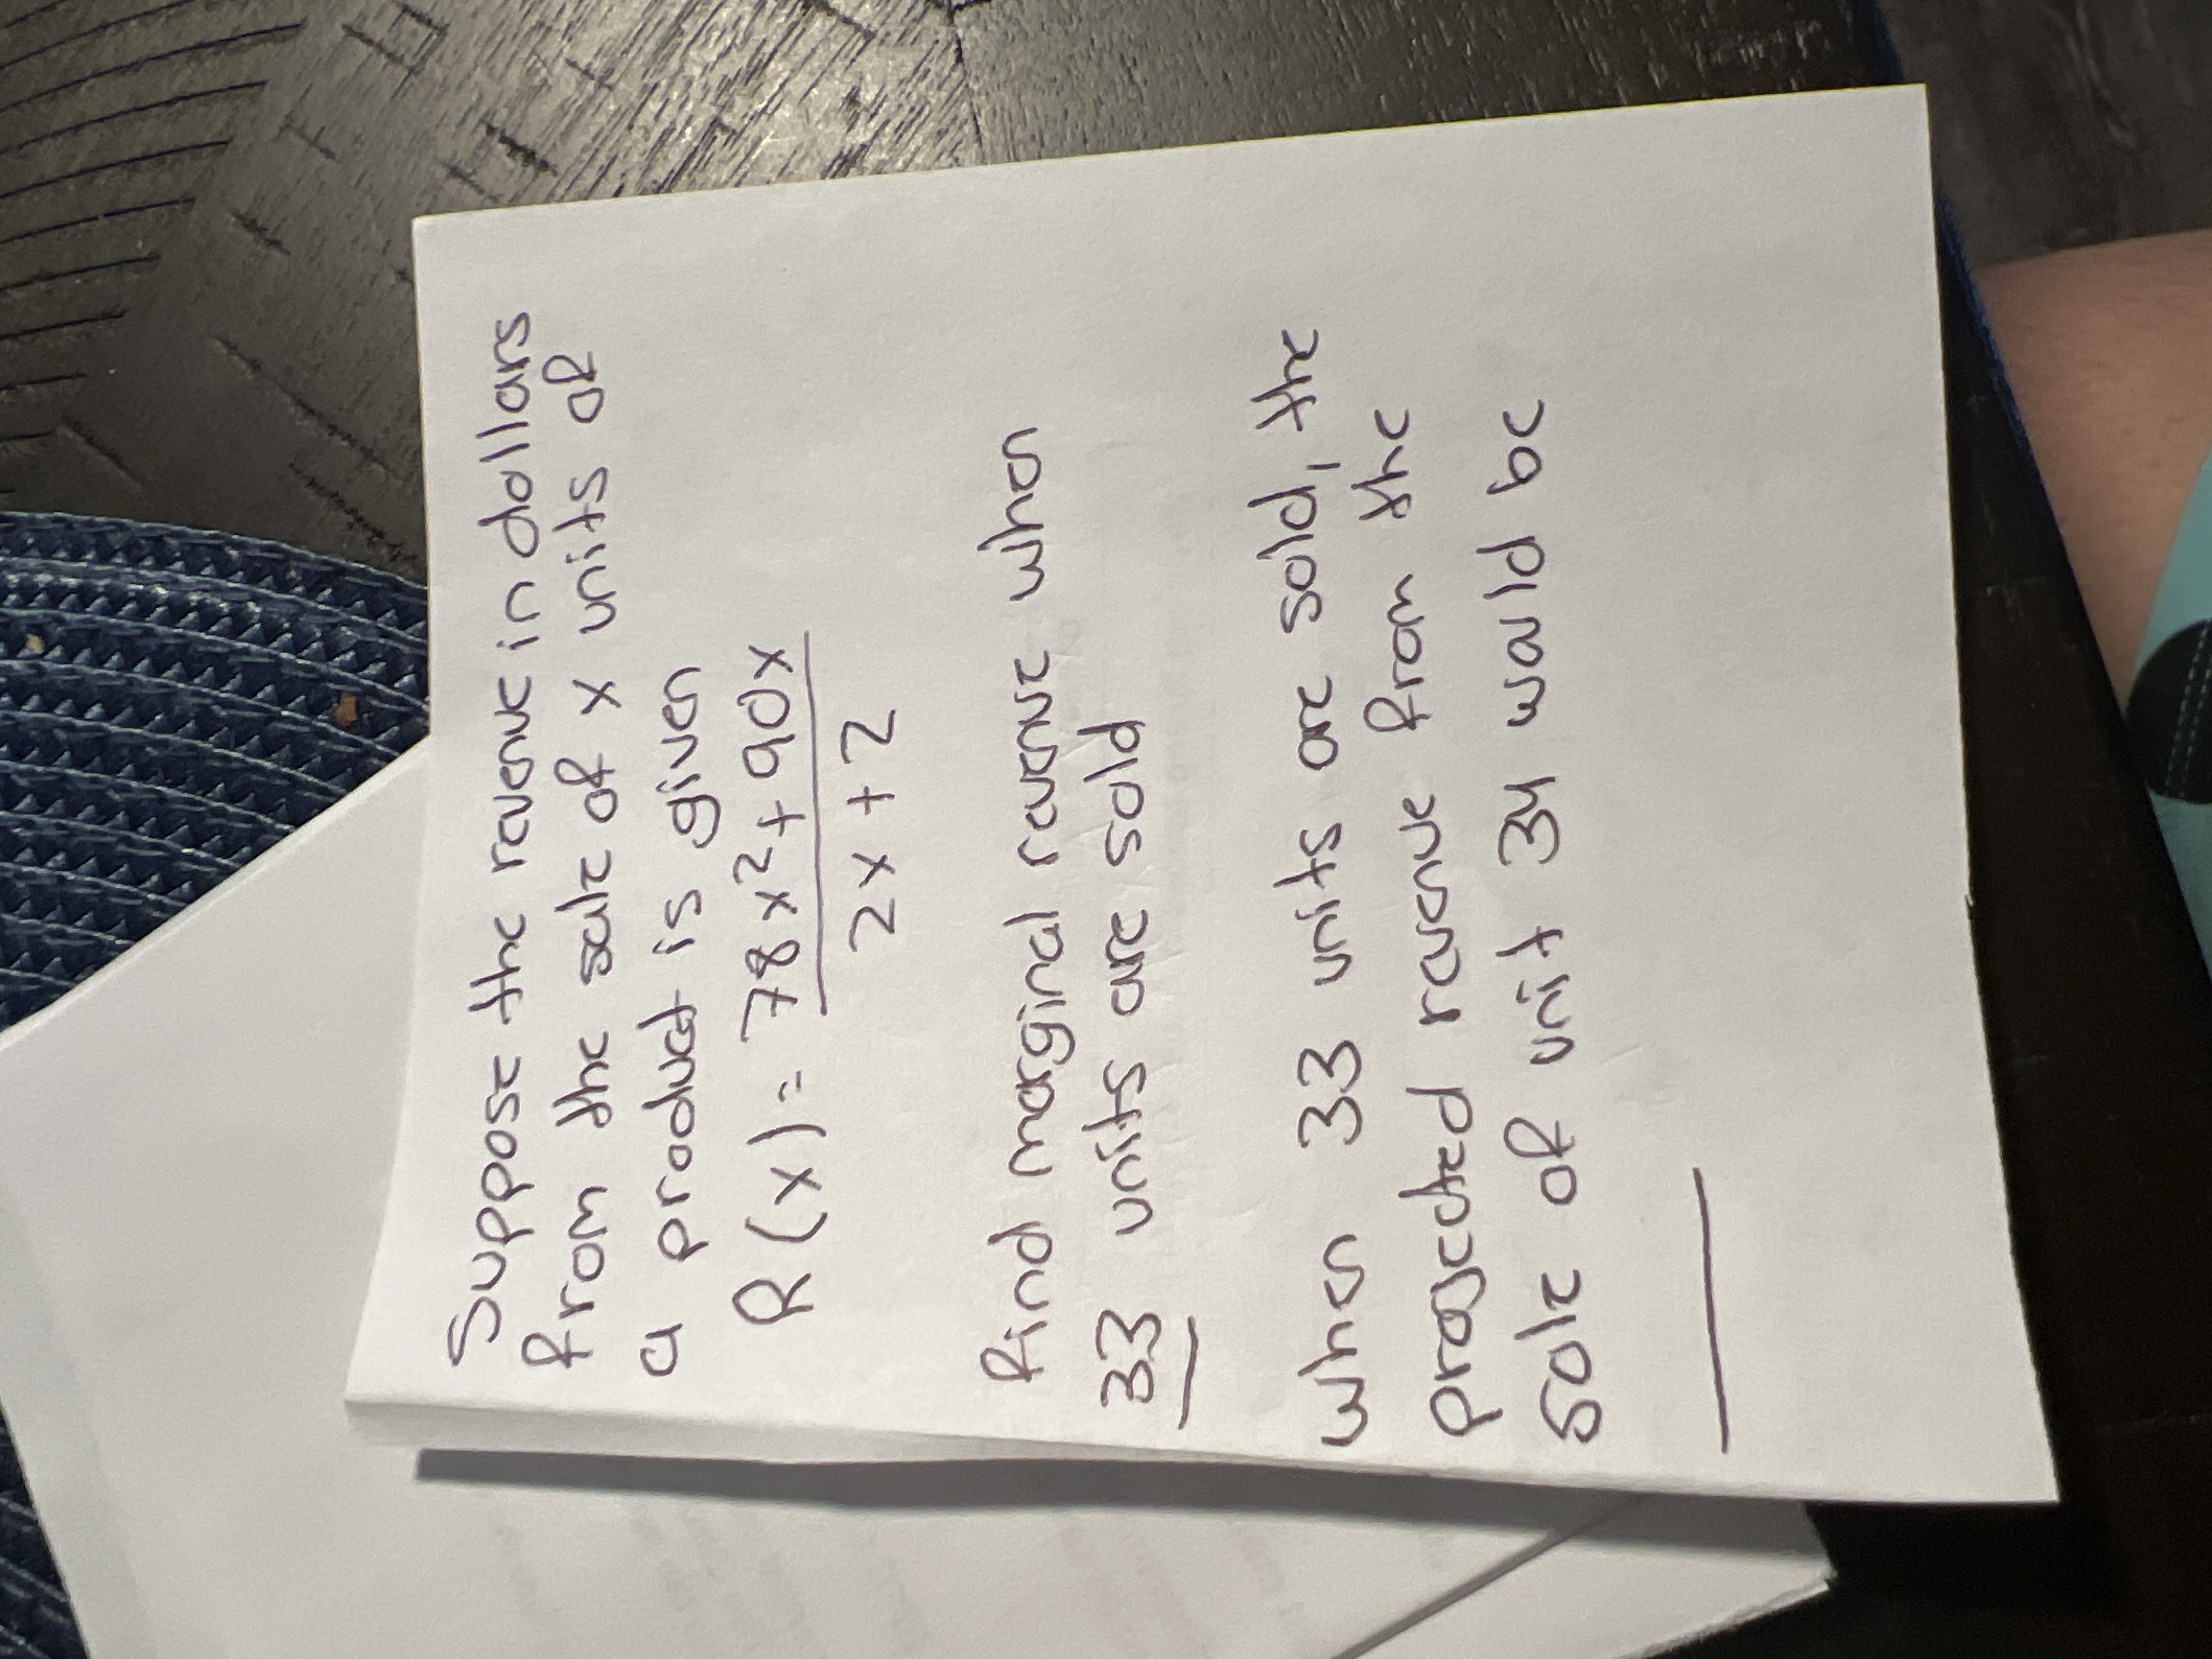 Suppose the revenue in dollars
from the sale of x units of
a product is given
R(x) = 78x² + 90x
2x + 2
find marginal revenue when
33 units are sold
when 33 units are sold, the
projected revenue from the
sale of unit 34 would be